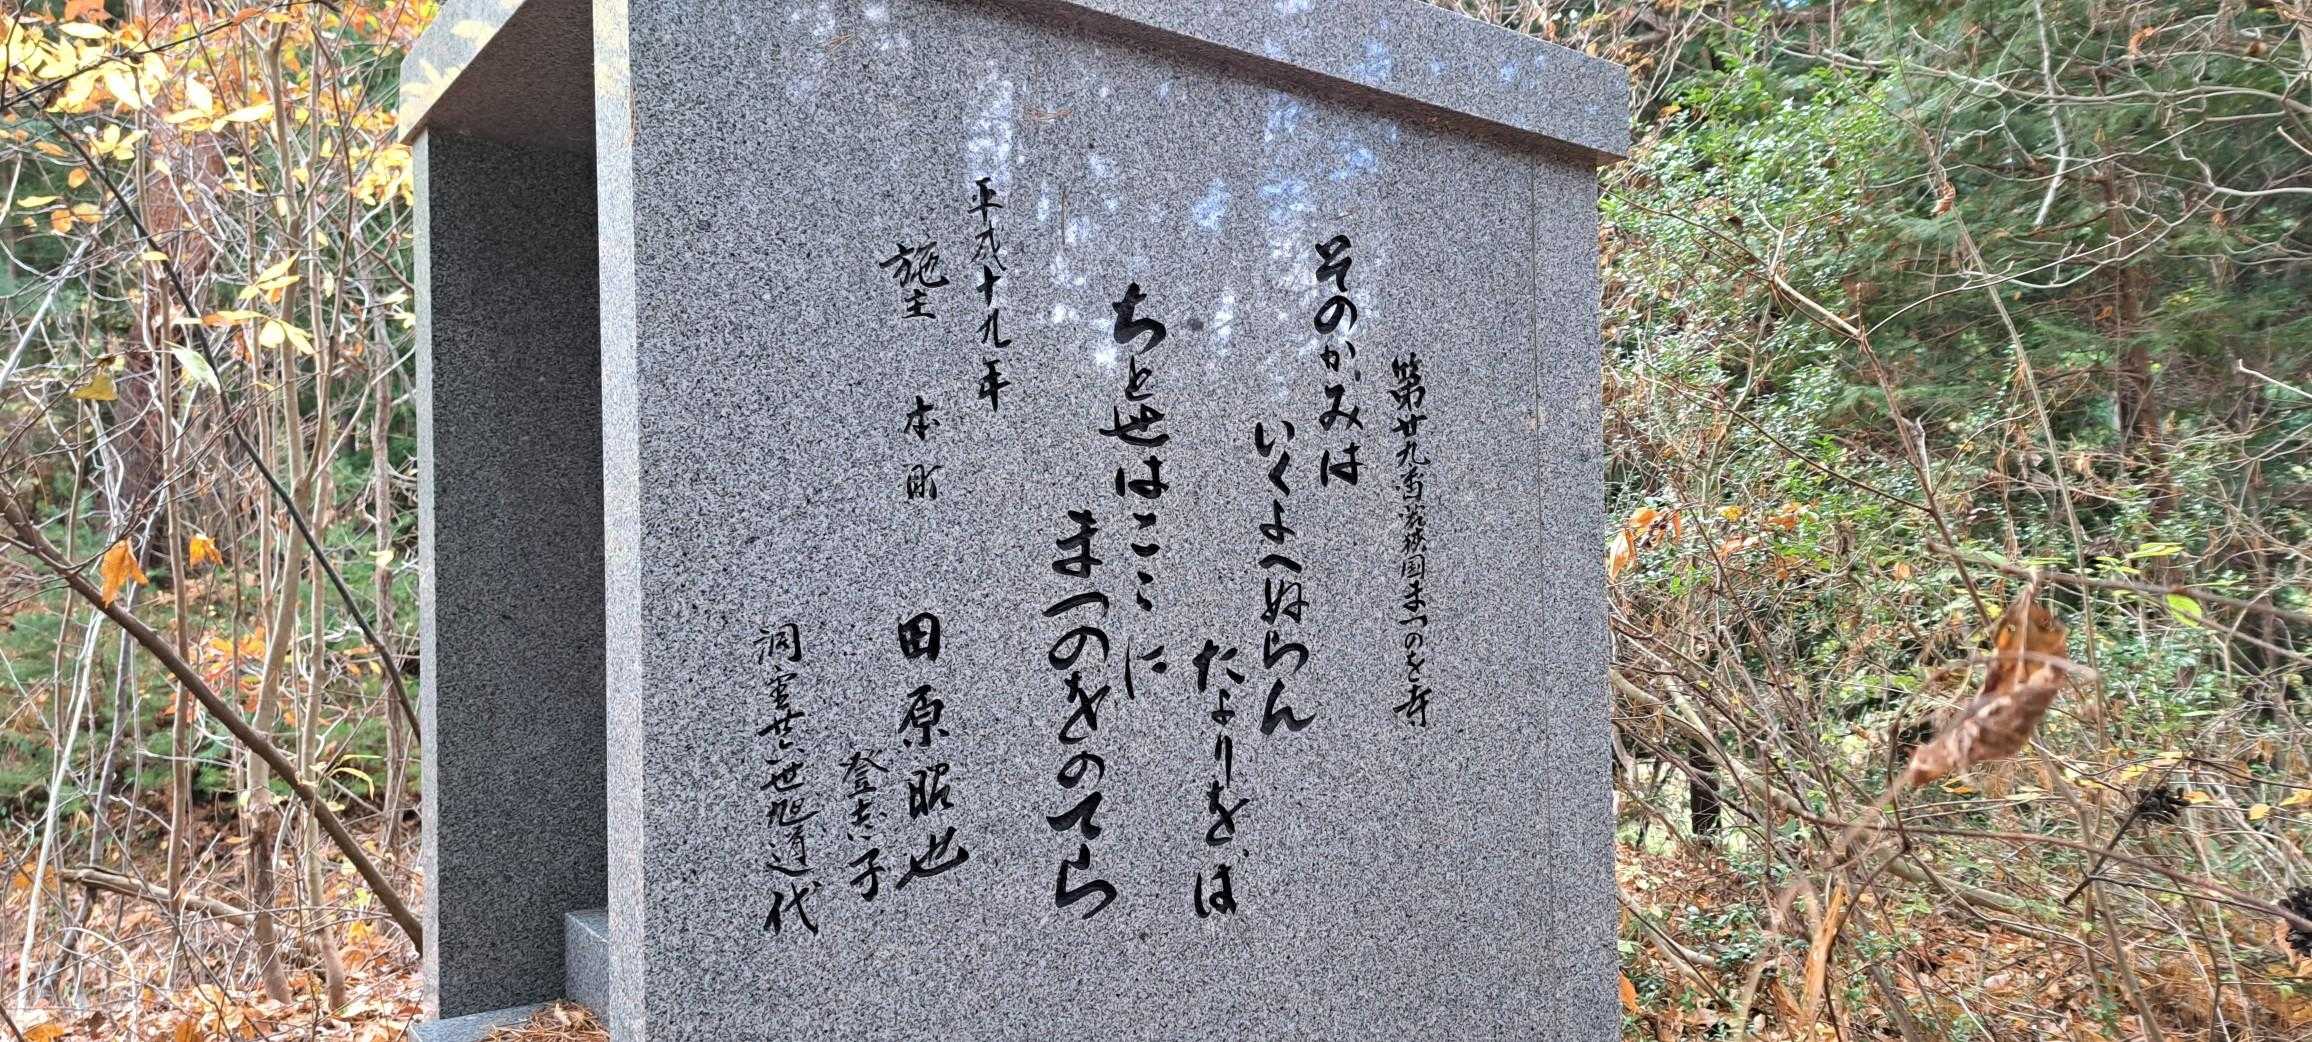 第廿九番若狭国まつのを寺
そのかみは
いくよへぬらん
たよりをば
ちとせはこゝに
まつのをのてら
平成十九年
施主 本町 田原昭也
登志子
洞雲廿六世旭道代